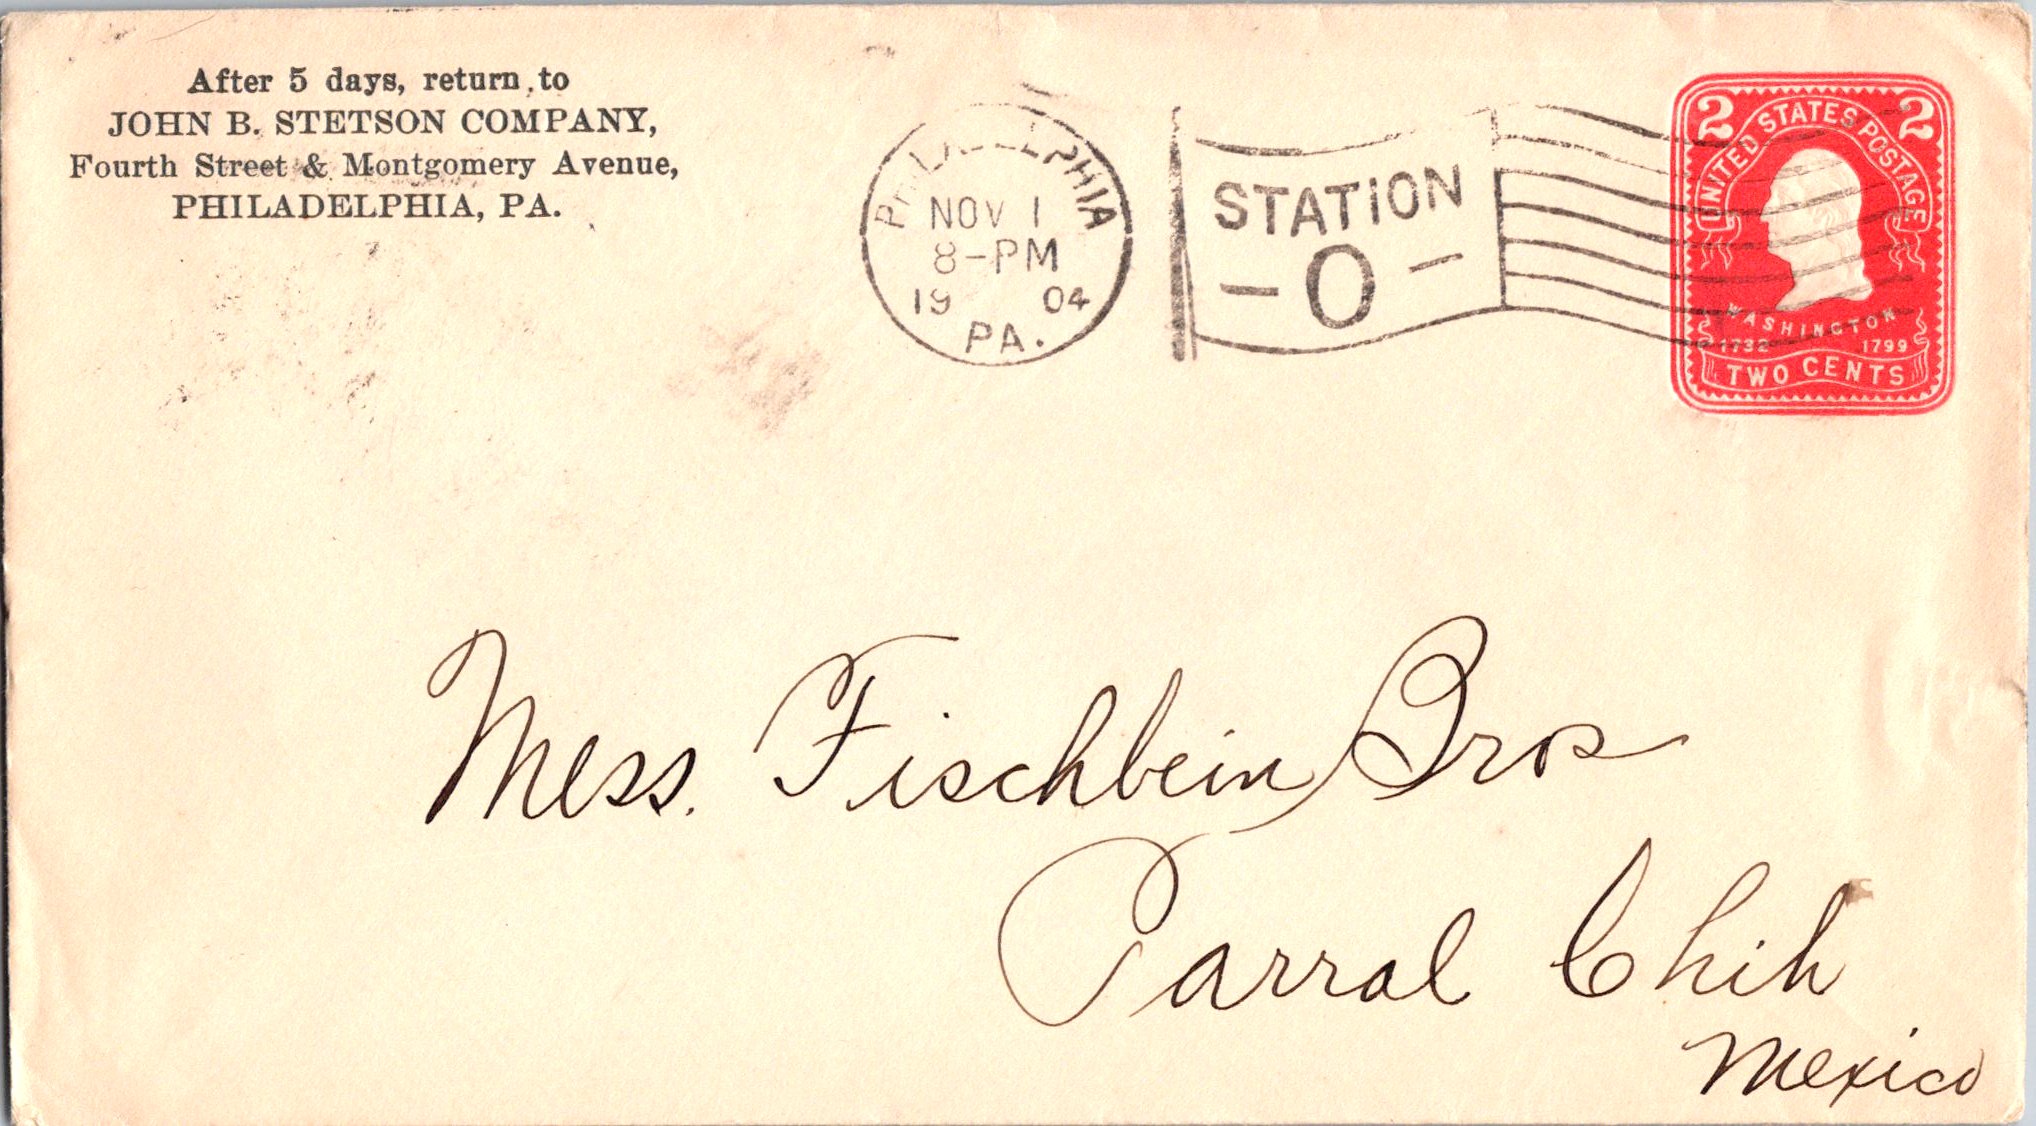 After 5 days, return to
JOHN B. STETSON COMPANY,
Fourth Street & Montgomery Avenue,
PHILADELPHIA, PA.
PHILADELPHIA
NOV 1
8-PM
19 04
PA.
STATION
- O -
2 2
UNITED STATES POSTAGE
WASHINGTON
1732 1799
TWO CENTS
Mess. Fischbein Bros
Parral Chih
Mexico